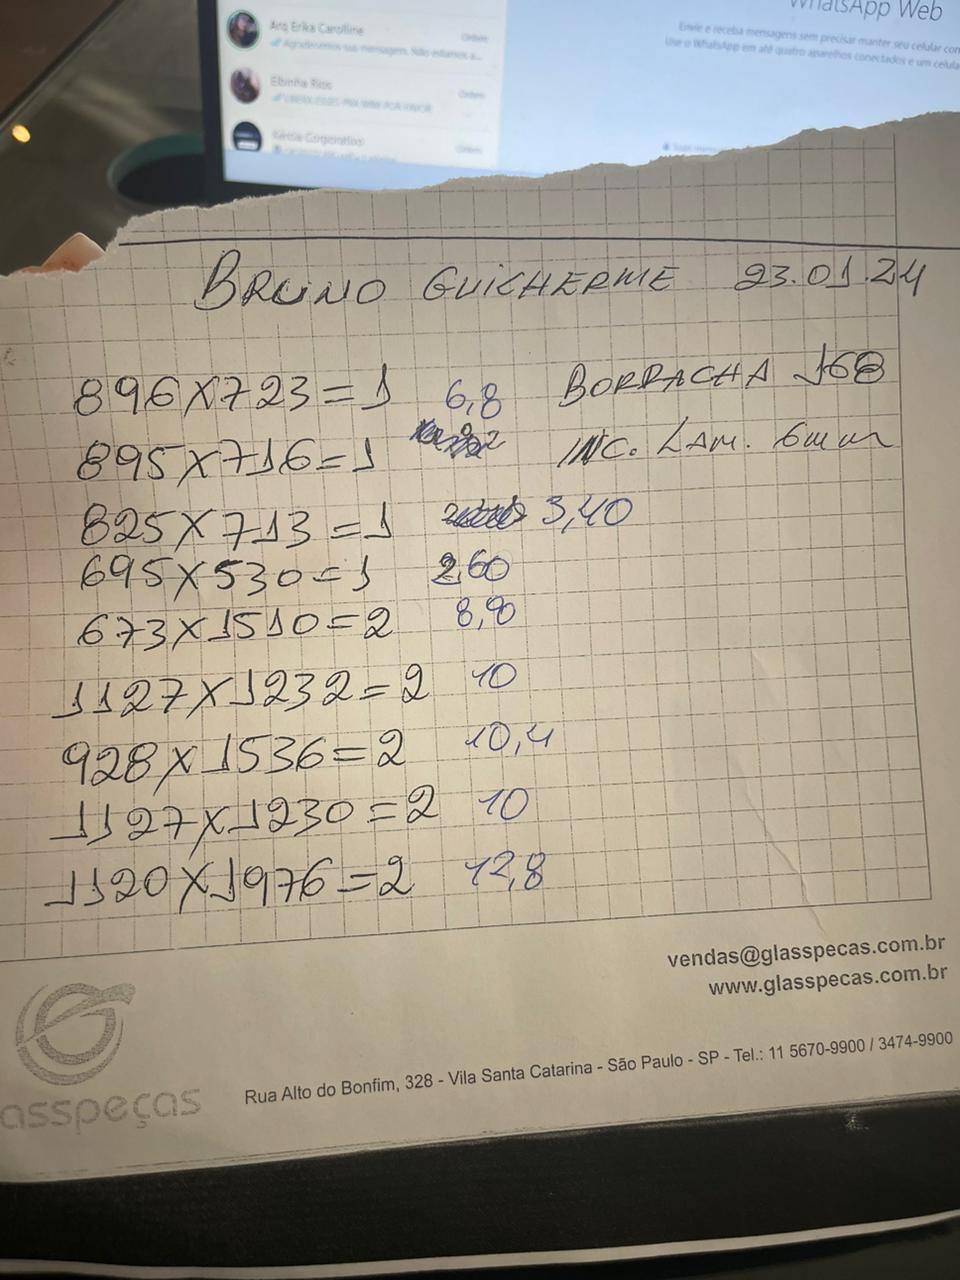 WhatsApp Web
Envie e receba mensagens sem precisar manter seu celular con
Use o WhatsApp em até quatro aparelhos conectados e um celula
Arq Erika Carolline
Ontem
Agradecemos sua mensagem. Não estamos a...
Elbinha Rios
Ontem
Corporativo
Ontem
BRUNO GUILHERME 23.01.24
896X723=1 6,8 BORRACHA 168
895X716=1 INC. LAM. 6mm
825X713=1 3,40
695X530=1 2,60
673X1510=2 8,90
1127X1232=2 10
928X1536=2 10,4
1127X1230=2 10
1120X1976=2 12,8
vendas@glasspecas.com.br
www.glasspecas.com.br
Rua Alto do Bonfim, 328 - Vila Santa Catarina - São Paulo - SP - Tel.: 11 5670-9900 / 3474-9900
asspeças